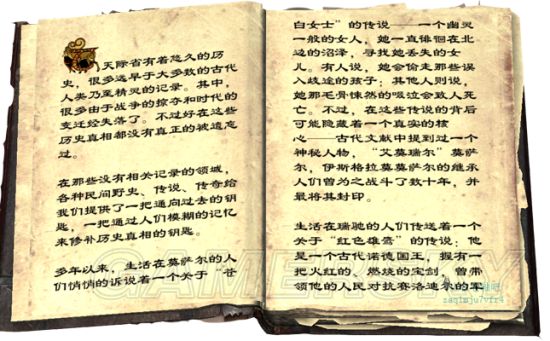 天际省有着悠久的历
史，很多远早于大多数的古代
人类乃至精灵的记录。其中，
很多由于战争的掠夺和时代的
变迁经失落了。不过好在这些
历史真相都没有真正的被遗忘
过。
在那些没有相关记录的领域，
各种民间野史、传说、传奇给
我们提供了一把通向过去的钥
匙，一把通过人们模糊的记忆
来修补历史真相的钥匙。
多年以来，生活在莫萨尔的人
们悄悄的诉说着一个关于“苍
白女士”的传说——一个幽灵
一般的女人，她一直徘徊在北
边的沼泽，寻找她丢失的女
儿。有人说，她会偷走那些误
入歧途的孩子；其他人则说，
她那毛骨悚然的吸泣会致人死
亡。不过，在这些传说的背后
可能隐藏着一个真实的核
心——古代文献中提到过一个
神秘人物，“艾莫瑞尔”莫萨
尔，伊斯格拉莫莫萨尔的继承
人们曾为之战斗了数十年，并
最将其封印。
生活在瑞驰的人们传送着一个
关于“红色雄鹰”的传说：他
是一个古代诺德国王，握有一
把火红的、燃烧的宝剑，曾带
领他的人民对抗赛洛迪尔的军
GAMERSKY
zaqimju7vfr4